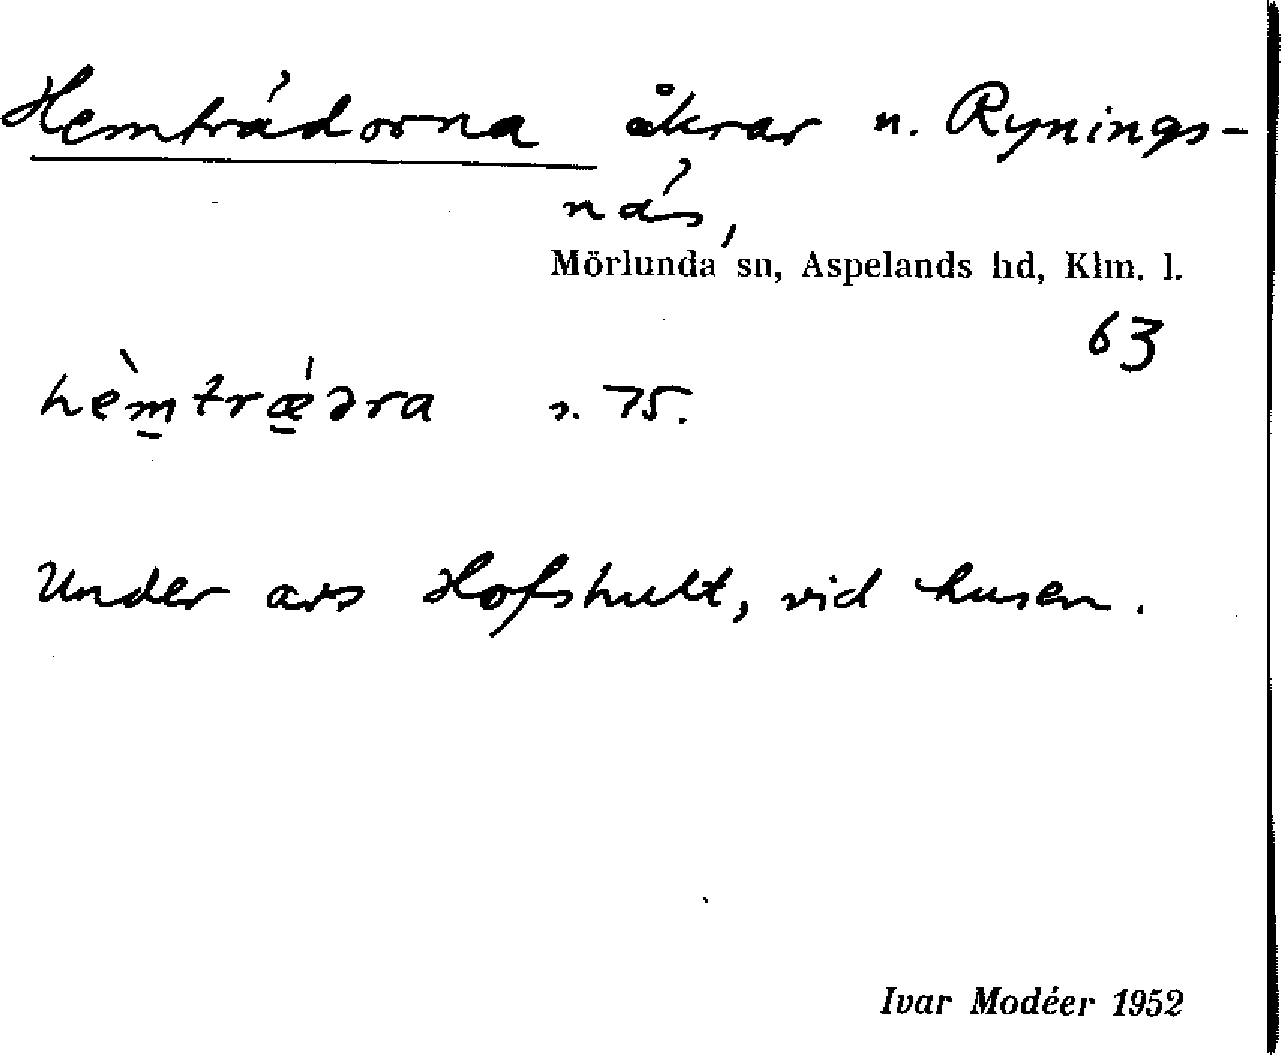 Hemträdorna åkrar n. Rynings-
näs,
Mörlunda sn, Aspelands hd, Klm. l.
63
hèm̲trǽ̲dra s. 75.
Under avs Hofshult, vid husen.
Ivar Modéer 1952